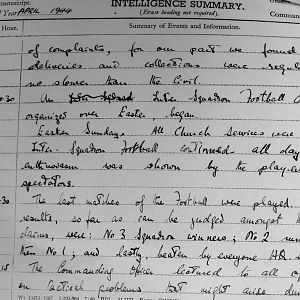 INTELLIGENCE SUMMARY.
Year APRIL 1944
(Erase heading not required).
Hour.
Summary of Events and Information.
of complaints, for our part we found
deliveries and collections were
no slower than the Civil.
30 An Inter Squadron Inter Squadron Football
organized over Easter, began.
Easter Sunday. All Church Services were
Inter-Squadron Football continued all day
enthusiasm was shown by the
spectators.
30 The last matches of the Football were played.
results, so far as can be judged amongst
claims, were: No 3 Squadron winners; No 2
then No 1; and lastly, beaten by everyone HQ
15 The Commanding Officer lectured to all
on Tactical problems that might arise